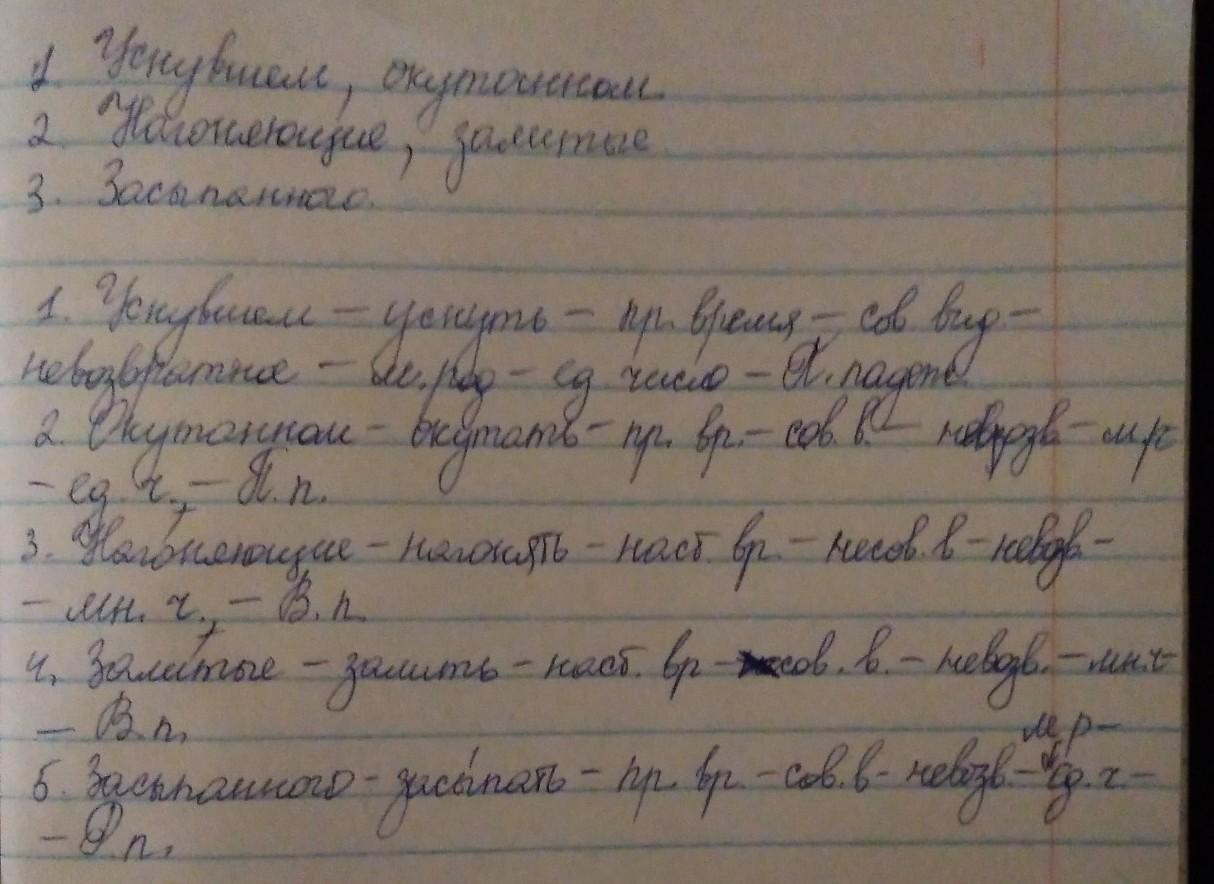 1. Уснувшем, окутанном.
2. Нагоняющие, залитые
3. Засыпанного.
1. Уснувшем – уснуть – пр. время – сов вид –
невозвратное – м. род – ед. число – П. падеж.
2. Окутанном – окутать – пр. вр. – сов. в. – невозв. – м.р.
– ед. ч., – П. п.
3. Нагоняющие – нагонять – наст. вр. – несов. в – невозв. –
– мн. ч., – В. п.
4. Залитые – залить – наст. вр – сов. в. – невозв. – мн.ч –
– В.п.
м.р –
5. Засыпанного – засы́пать – пр. вр. – сов.в – невозв. – ед.ч –
– Р.п.